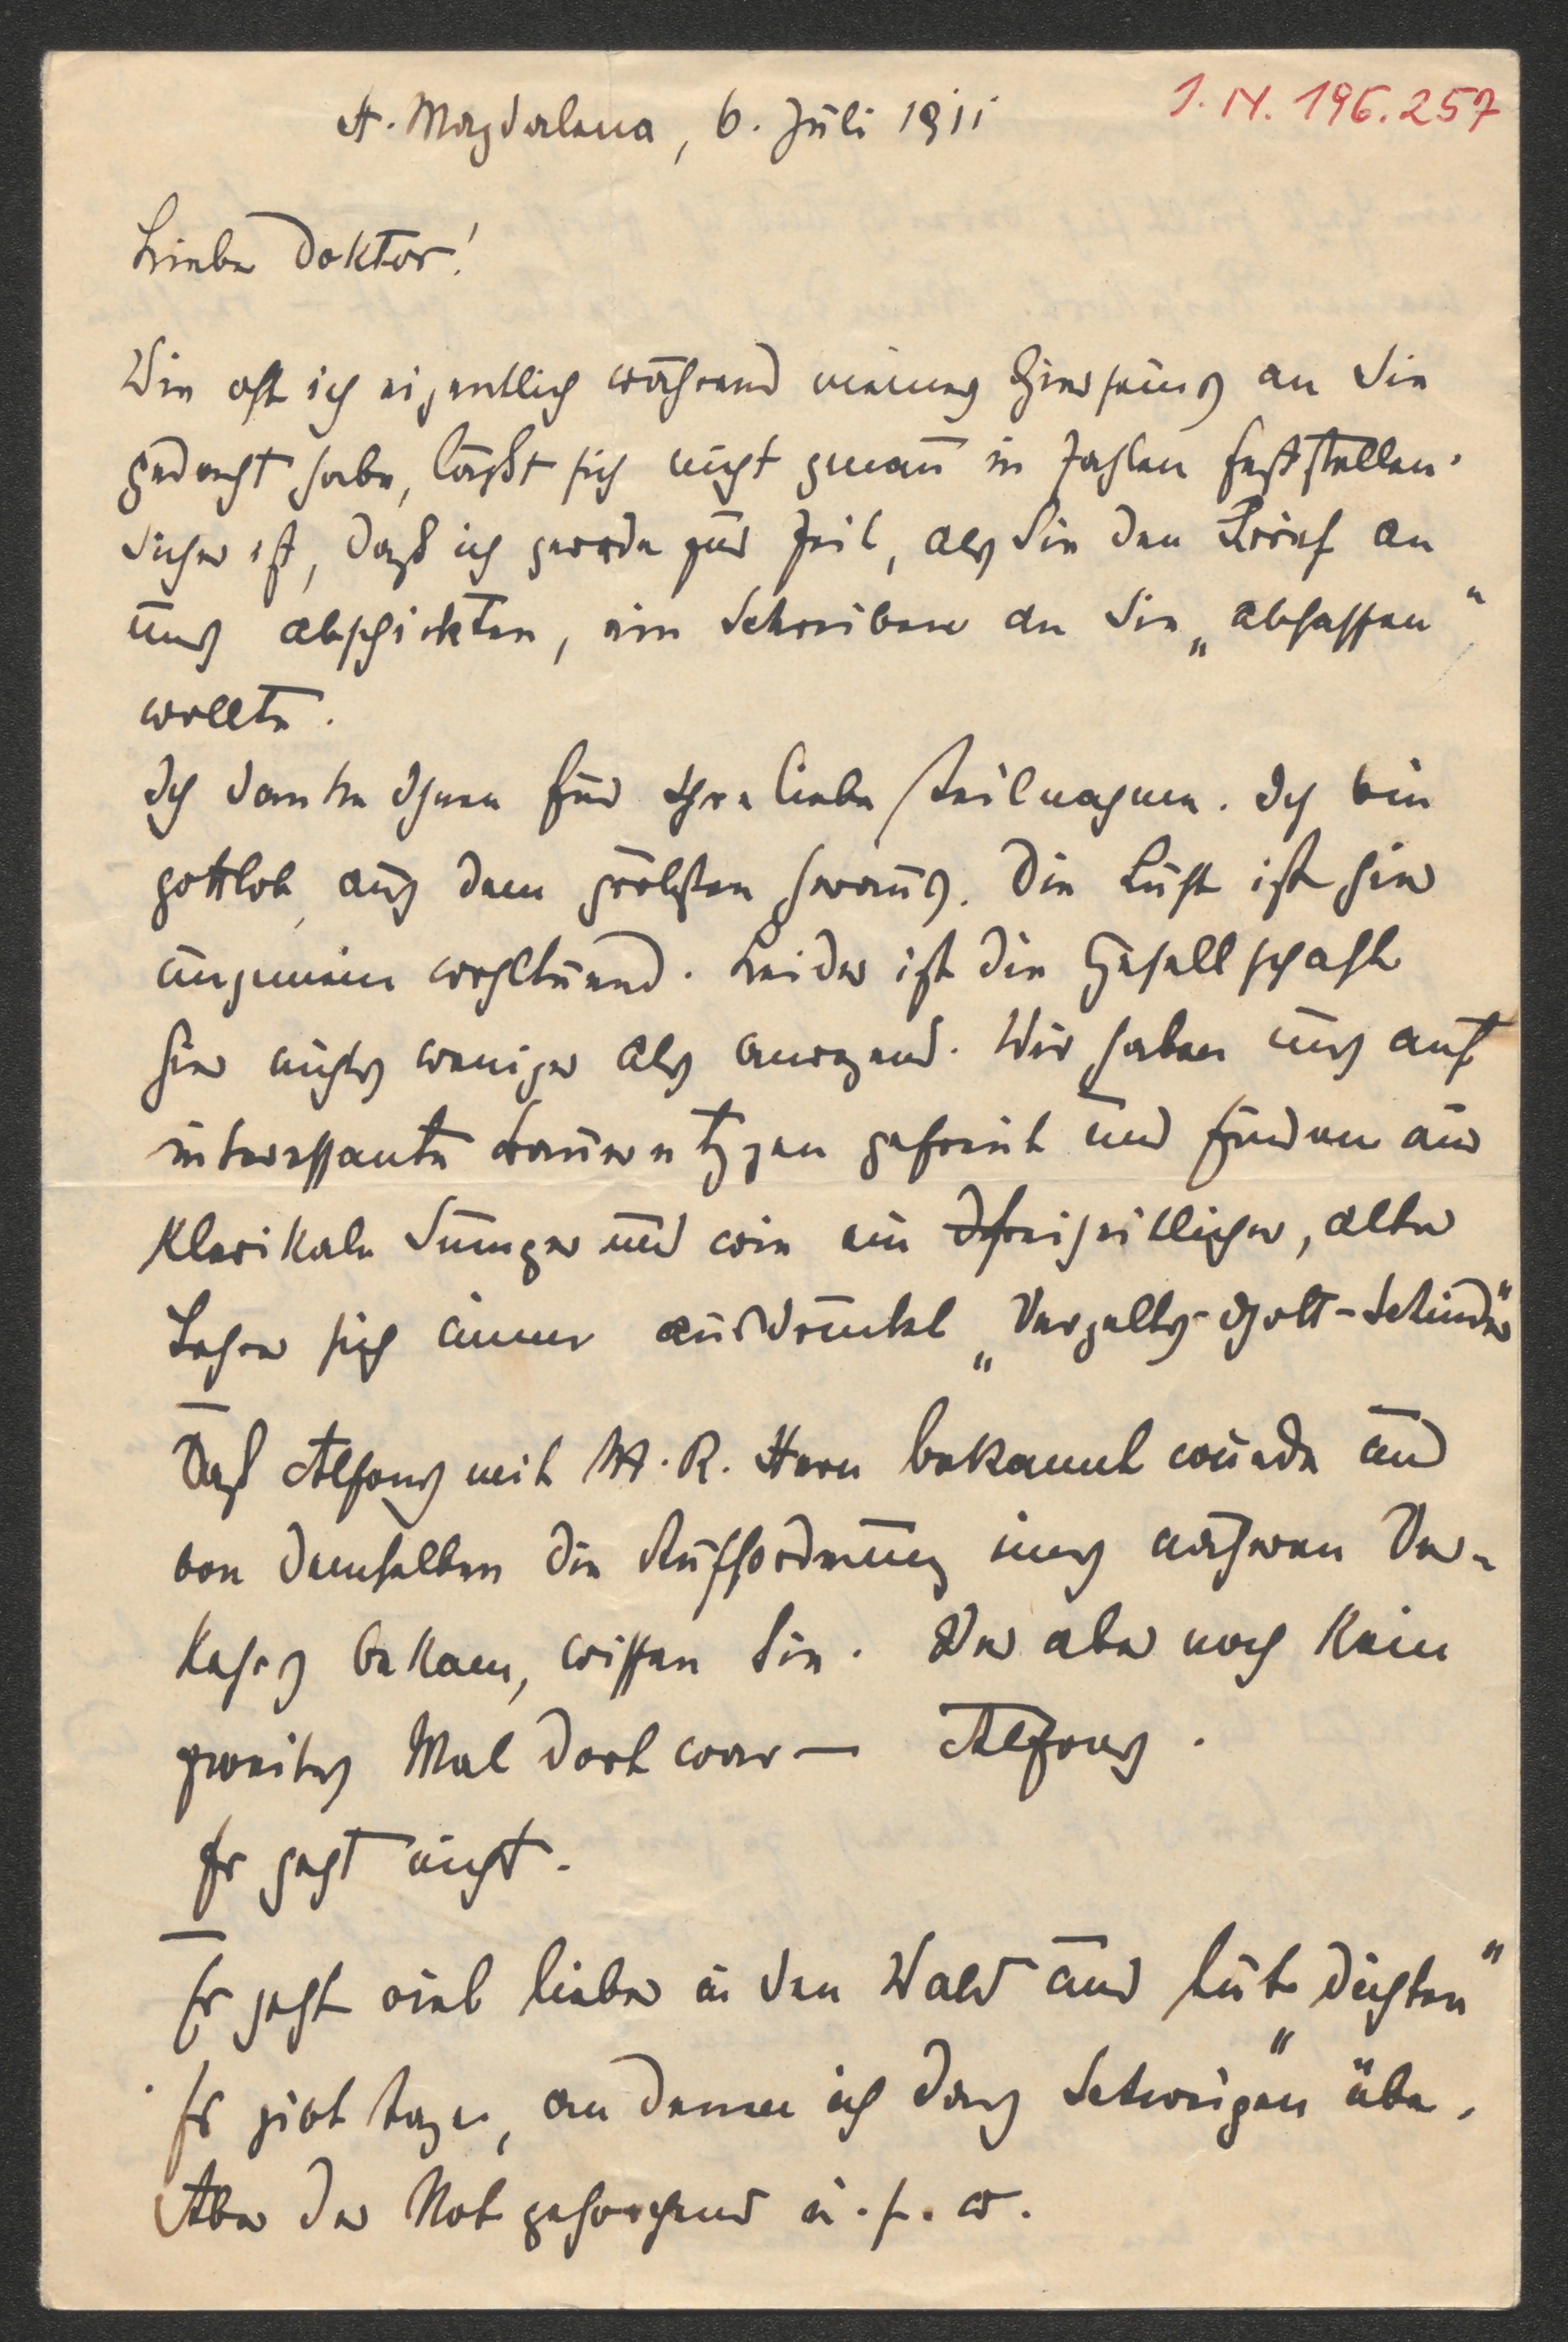 St. Magdalena, 6. Juli 1911
I.N. 196.257
Lieber Doktor!
Wie oft ich eigentlich während meines Hierseins an Sie
gedacht habe, läßt sich nicht genau in Zahlen feststellen.
Sicher ist, daß ich gerade zur Zeit, als Sie den Brief an
uns abschickten, ein Schreiben an Sie „abfassen“
wollte.
Ich danke Ihnen für Ihre liebe Teilnahme. Ich bin
gottlob, aus dem gröbsten heraus. Die Luft ist hier
ungemein wohltuend. Leider ist die Gesellschaft
hier nichts weniger als anregend. Wir haben uns auf
interessante Bauerntypen gefreut und finden nur
klerikale Dunger und wie ein freigeistlicher, alter
Lehrer sich immer ausdrückt „Vergelts-Gott-Schinder“
Daß Alfons mit M. R. Stern bekannt wurde und
von demselben die Aufforderung eines näheren Ver-
kehrs bekam, wissen Sie. Wer aber noch kein
zweites Mal dort war — Alfons.
Er geht nicht.
Er geht viel lieber in den Wald und tut „dichten“
Es gibt Tage, an denen ich das Schweigen übe.
Aber der Not gehorchend u.s.w.